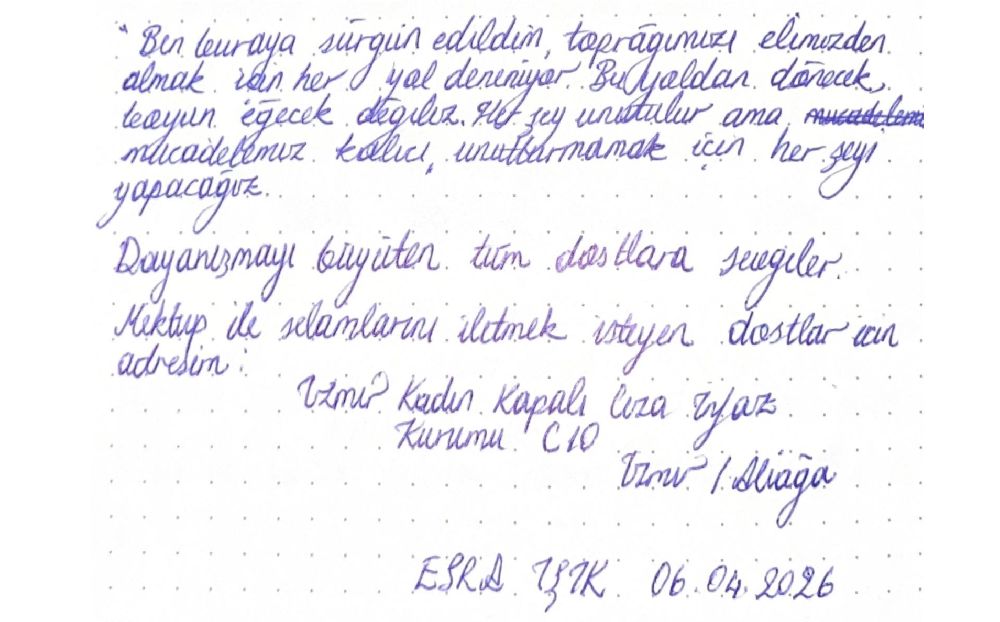 " Ben buraya sürgün edildim, toprağımızı elimizden
almak için her yol deneniyor. Bu yoldan dönecek,
boyun eğecek değiliz. Her şey unutulur ama mücadelemi
mücadelemiz kalıcı, unutturmamak için her şeyi
yapacağız.
Dayanışmayı büyüten tüm dostlara sevgiler.
Mektup ile selamlarını iletmek isteyen dostlar için
adresim:
İzmir Kadın Kapalı Ceza İnfaz
Kurumu C10
İzmir / Aliağa
ESRA IŞIK 06.04.2026